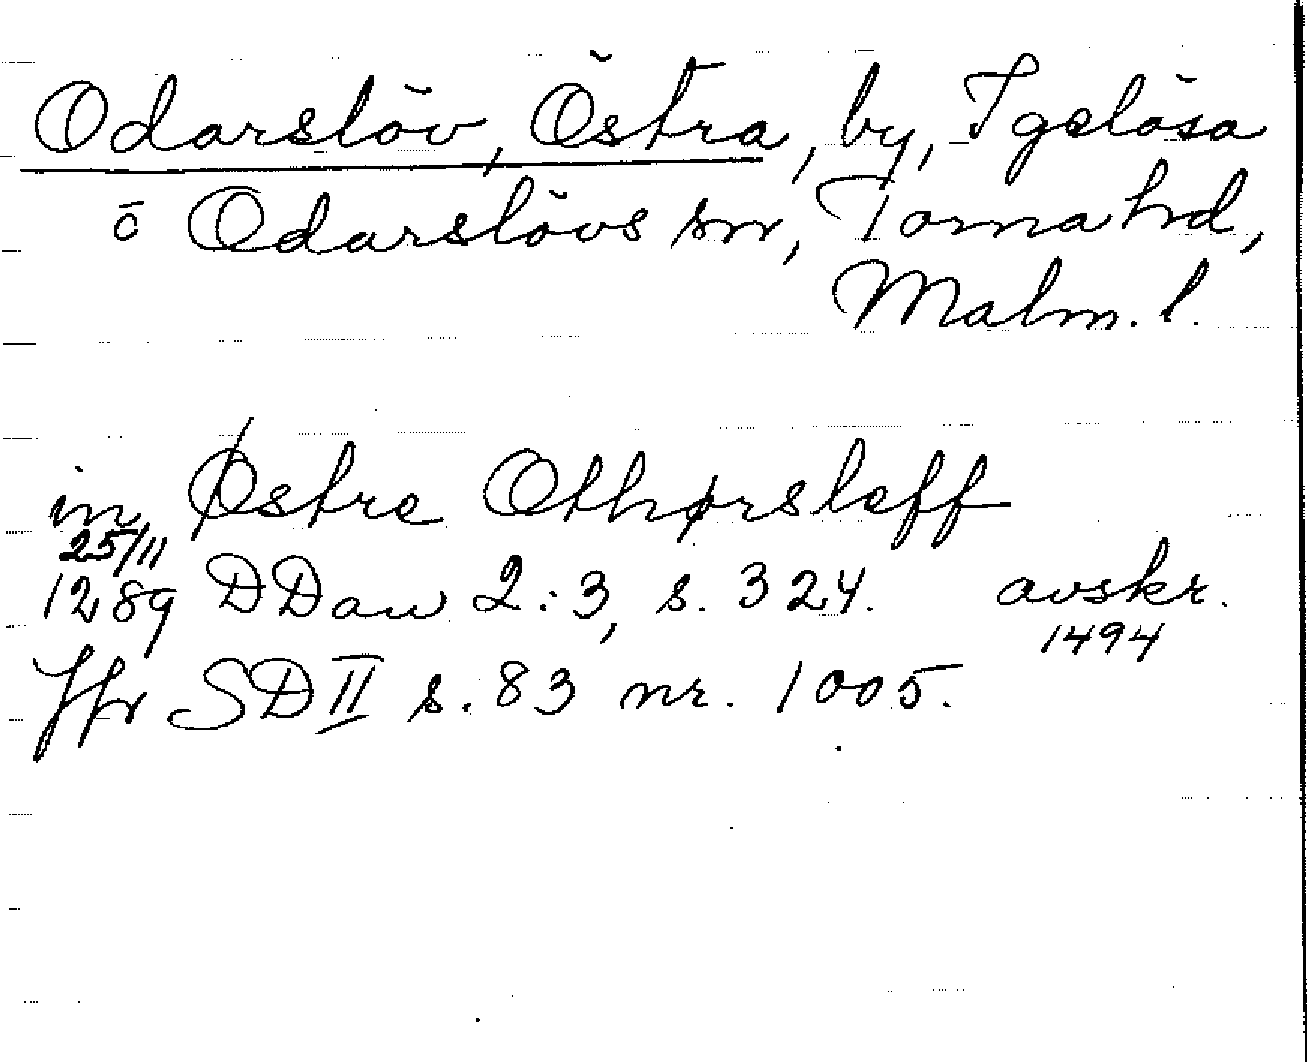 Odarslöv, Östra, by, Igelösa
o Odarslövs sn, Torna hd,
Malm. l.
in Østre Othørsleff
25/11
1289 DDan 2:3, s. 324. avskr.
1494
Jfr SD II s. 83 nr. 1005.